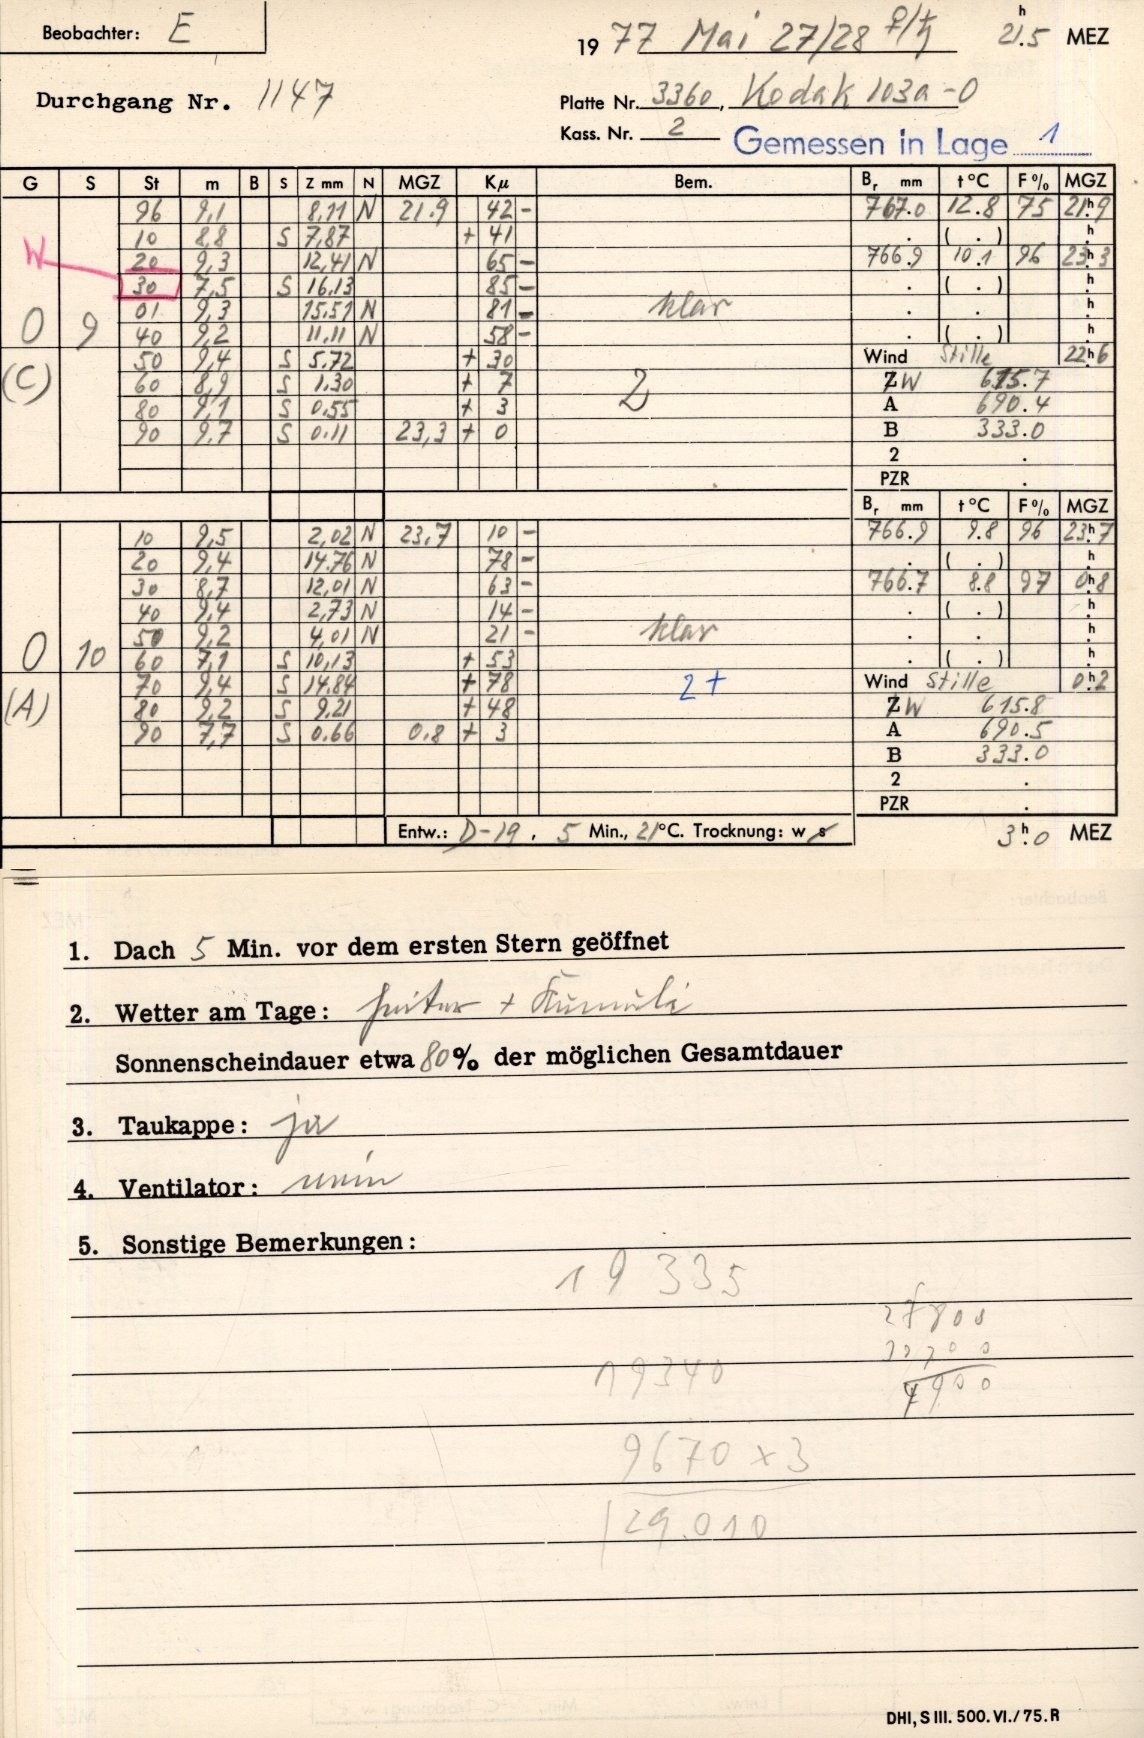 Beobachter: E
1977 Mai 27/28 ♀/♄ 21.5 h MEZ
Durchgang Nr. 1147
Platte Nr. 3360, Kodak 103a-O
Kass. Nr. 2 Gemessen in Lage 1
G S St m B S Z mm N MGZ Kμ Bem. Br mm t°C F% MGZ
96 9,1 8,11 N 21.9 42 - 767.0 12.8 75 21h9
10 8,8 S 7,87 + 41 . ( . ) h
W 20 9,3 12,41 N 65 - 766.9 10.1 96 23h3
30 7,5 S 16,13 85 - . ( . ) h
01 9,3 15.51 N 81 - klar . . h
O 9 40 9,2 11,11 N 58 - . ( . ) h
50 9,4 S 5.72 + 30 Wind Stille 22h6
(C) 60 8,9 S 1.30 + 7 2 Z W 615.7
80 9,1 S 0,55 + 3 A 690.4
90 9.7 S 0.11 23,3 + 0 B 333.0
2 .
PZR .
Br mm t°C F% MGZ
10 9,5 2,02 N 23,7 10 - 766.9 9.8 96 23h7
20 9,4 14.76 N 78 - . ( . ) h
30 8,7 12,01 N 63 - 766.7 8.8 97 0h8
40 9,4 2,73 N 14 - . ( . ) h
50 9,2 4,01 N 21 - klar . . h
O 10 60 7,1 S 10,13 + 53 . ( . ) h
70 9,4 S 14,84 + 78 2+ Wind Stille 0h2
(A) 80 9,2 S 9,21 + 48 Z W 615.8
90 7,7 S 0.66 0.8 + 3 A 690.5
B 333.0
2 .
PZR .
Entw.: D-19, 5 Min., 21°C. Trocknung: w s 3h0 MEZ
1. Dach 5 Min. vor dem ersten Stern geöffnet
2. Wetter am Tage: heiter + Kumuli
Sonnenscheindauer etwa 80% der möglichen Gesamtdauer
3. Taukappe: ja
4. Ventilator: nein
5. Sonstige Bemerkungen:
19 335
19340
9670 x 3
29.010
DHI, S III. 500. VI./75. R